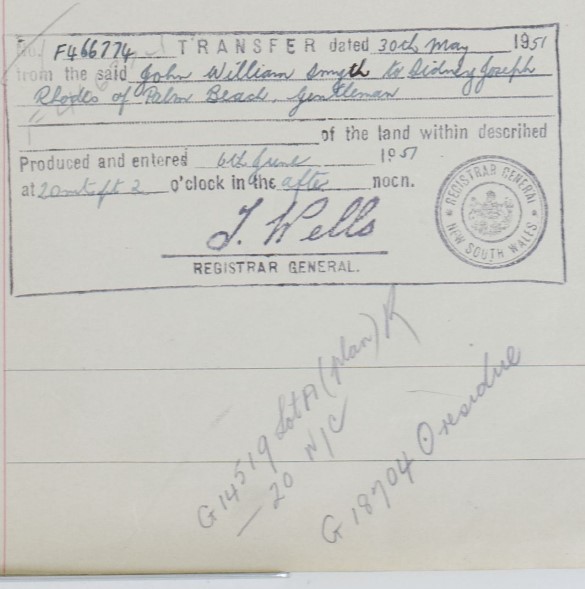 No. F466774 TRANSFER dated 30th May 1951
from the said John William Smyth to Sidney Joseph
Rhodes of Palm Beach, Gentleman
of the land within described
Produced and entered 6th June 1951
at 20 mts pt 2 o'clock in the after noon.
J. Wells
REGISTRAR GENERAL.
REGISTRAR GENERAL
NEW SOUTH WALES
G14519 Lot A (plan) R
— 20 N/C
G 18704 O residue